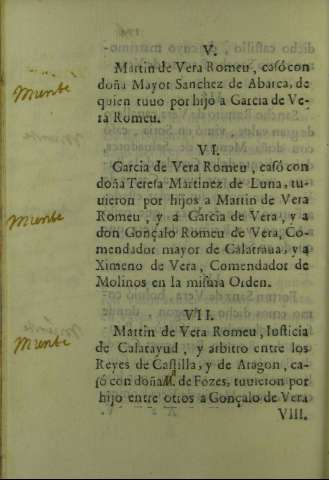 V.
Martin de Vera Romeu, casó con
doña Mayor Sanchez de Abarca, de
quien tuuo por hijó a Garcia de Ve-
ra Romeu.
miente
VI.
Garcia de Vera Romeu, casó con
doña Teresa Martinez de Luna, tu-
uieron por hijos a Martin de Vera
Romeu, y a Garcia de Vera, y a
don Gonçalo Romeu de Vera, Co-
mendador mayor de Calatraua, y a
Ximeno de Vera, Comendador de
Molinos en la misma Orden.
miente
VII.
Martin de Vera Romeu, Iusticia
de Calatayud, y arbitro entre los
Reyes de Castilla, y de Aragon, ca-
só con doña M. de Fozes, tuuieron por
hijo entre otros a Gonçalo de Vera
miente
VIII.